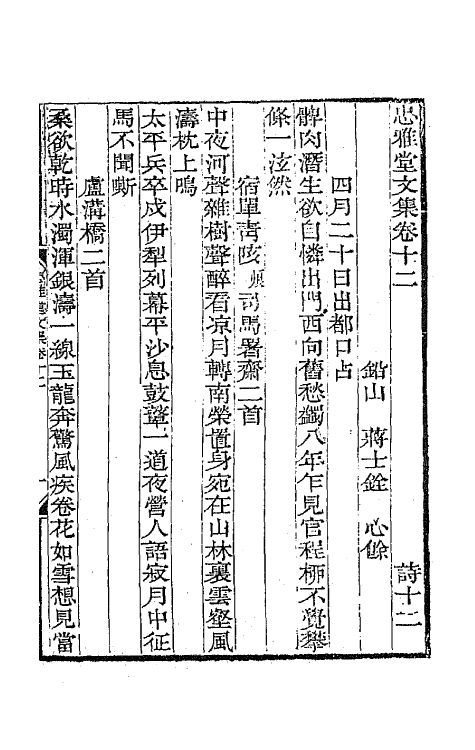 忠雅堂文集卷十二　詩十二
鉛山　蔣士銓　心餘
四月二十日出都口占
髀肉潛生欲自憐出門西向舊愁蠲八年乍見官程柳不覺攀
條一泫然
宿單靑
司馬署齋二首
中夜河聲雜樹聲醉看凉月轉南榮置身宛在山林裏雲壑風
濤枕上鳴
太平兵卒戍伊犁列幕平沙息鼓鼙一道夜營人語寂月中征
馬不聞嘶
盧溝橋二首
桑欲乾時水濁渾銀濤一線玉龍奔驚風疾卷花如雪想見當